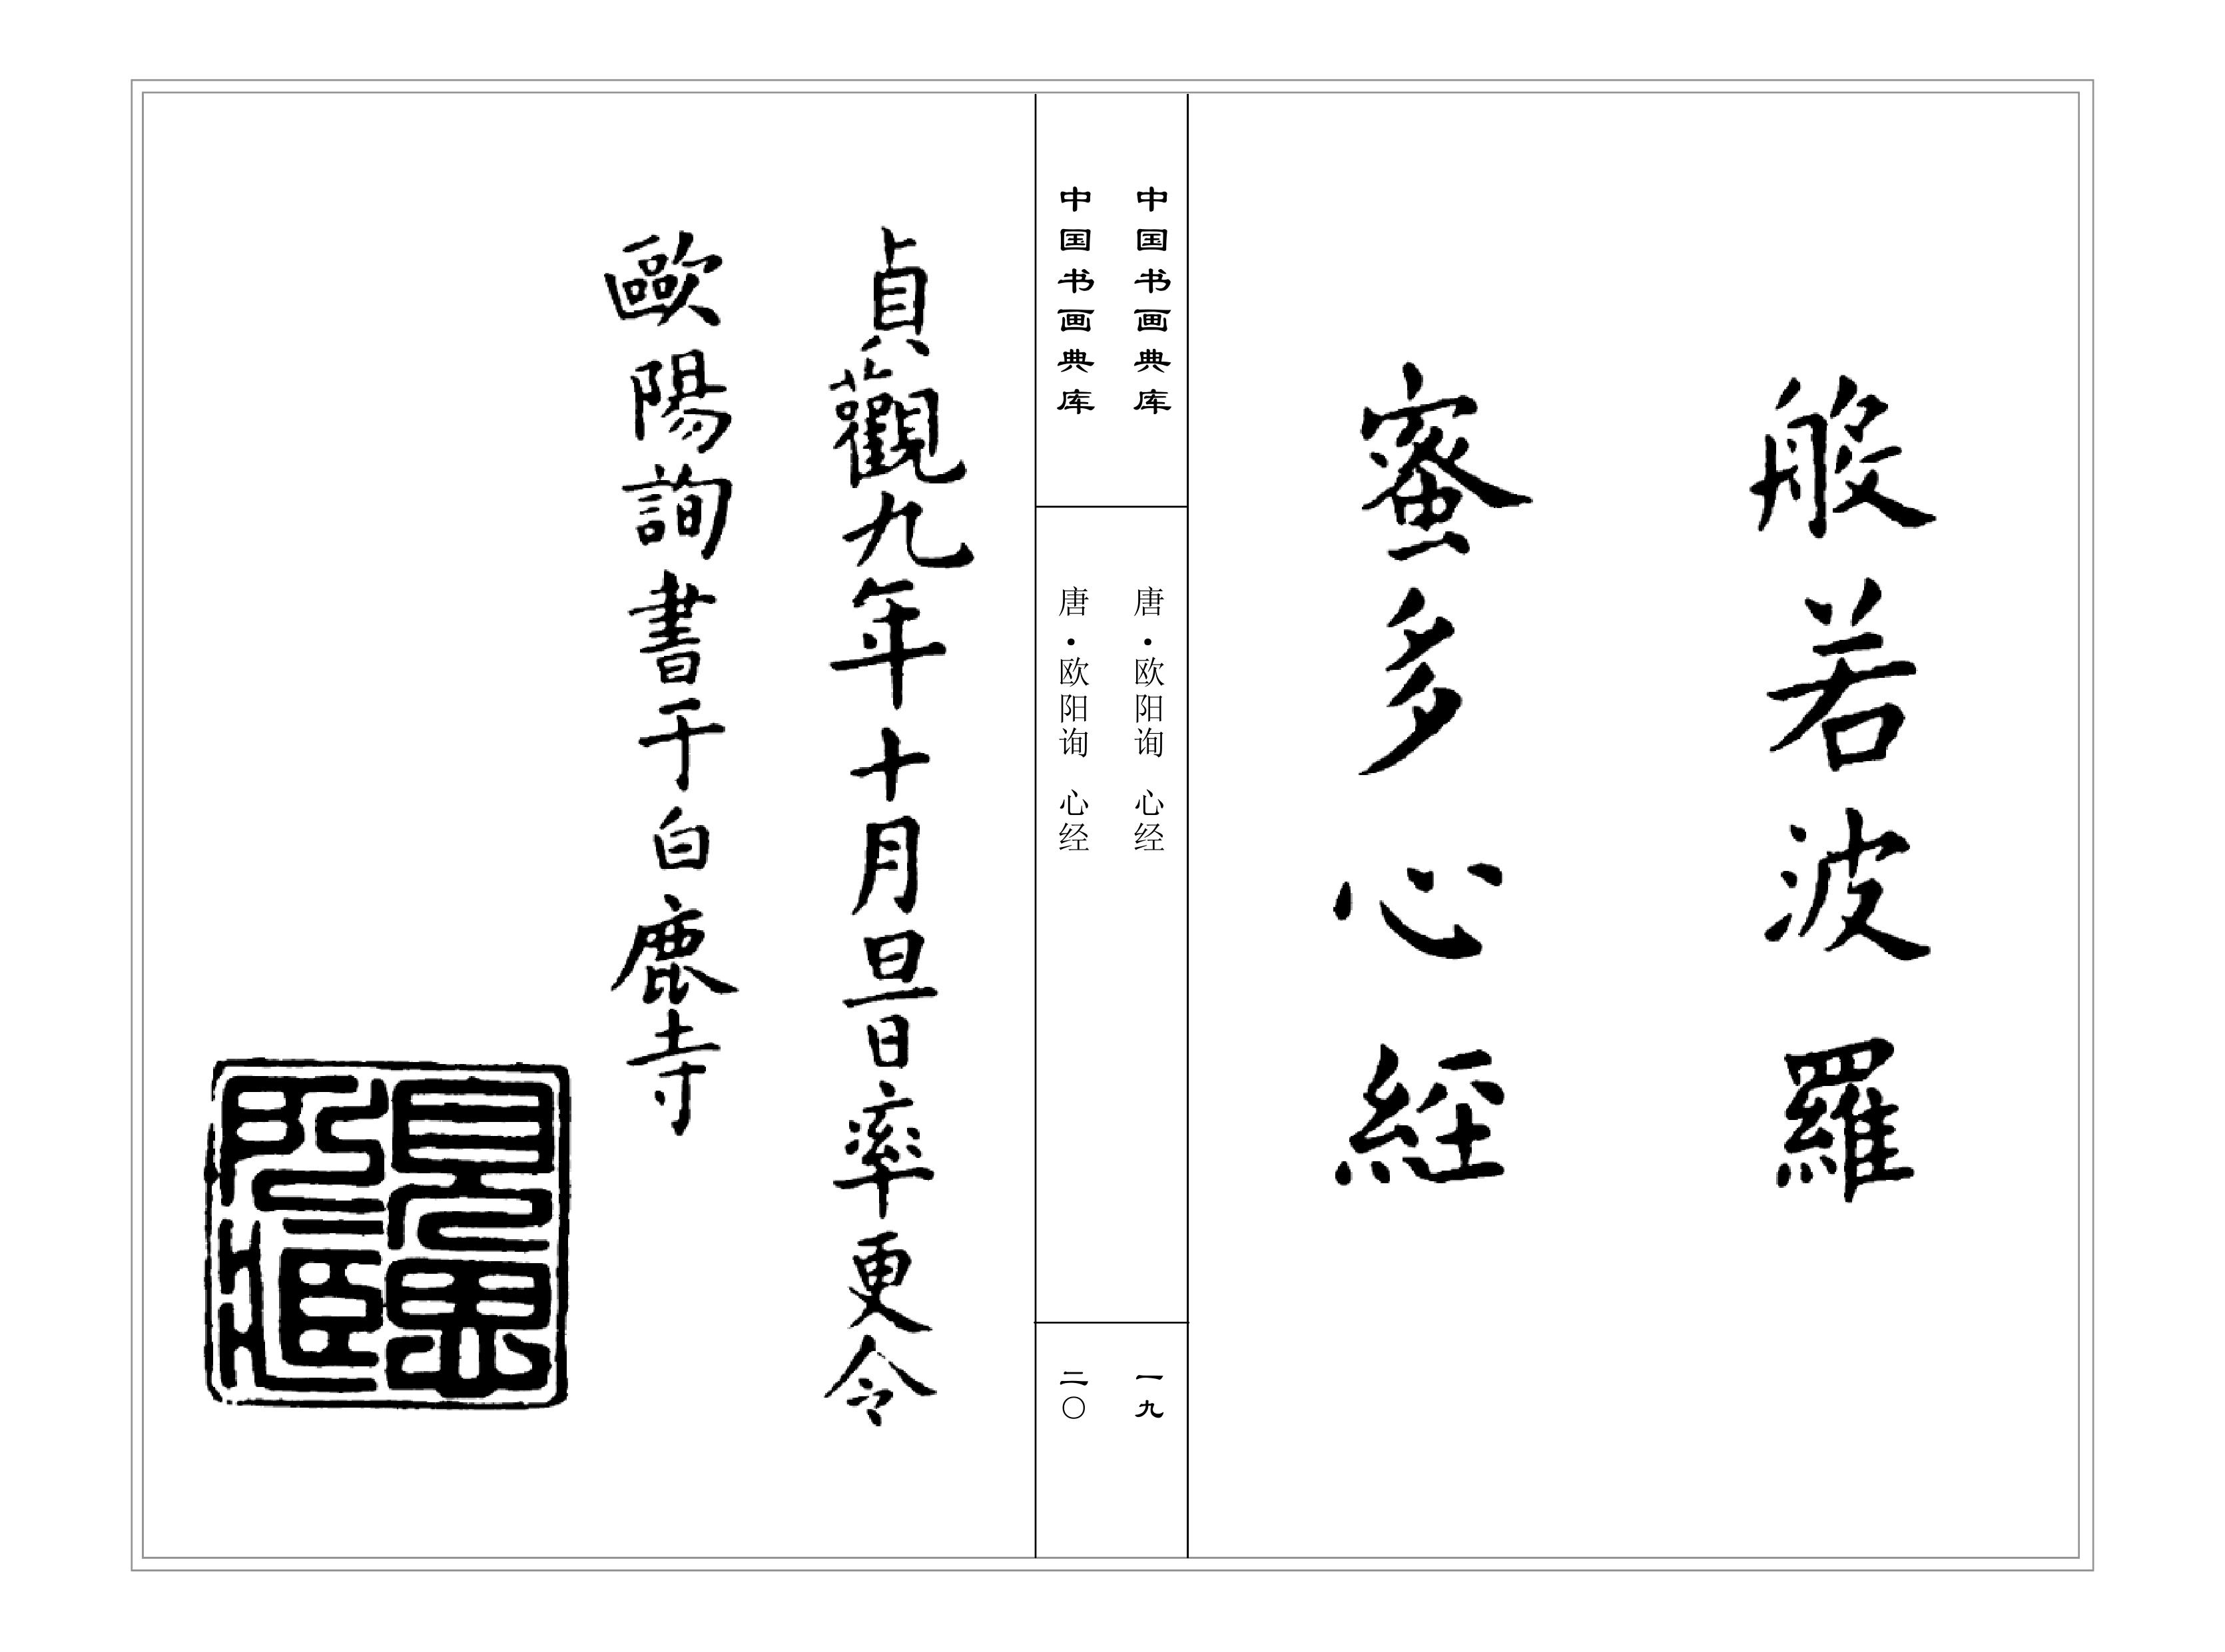 般若波羅
蜜多心經
中国书画典库
唐·欧阳询 心经
一九
中国书画典库
唐·欧阳询 心经
二〇
貞觀九年十月旦日率更令
歐陽詢書于白鹿寺